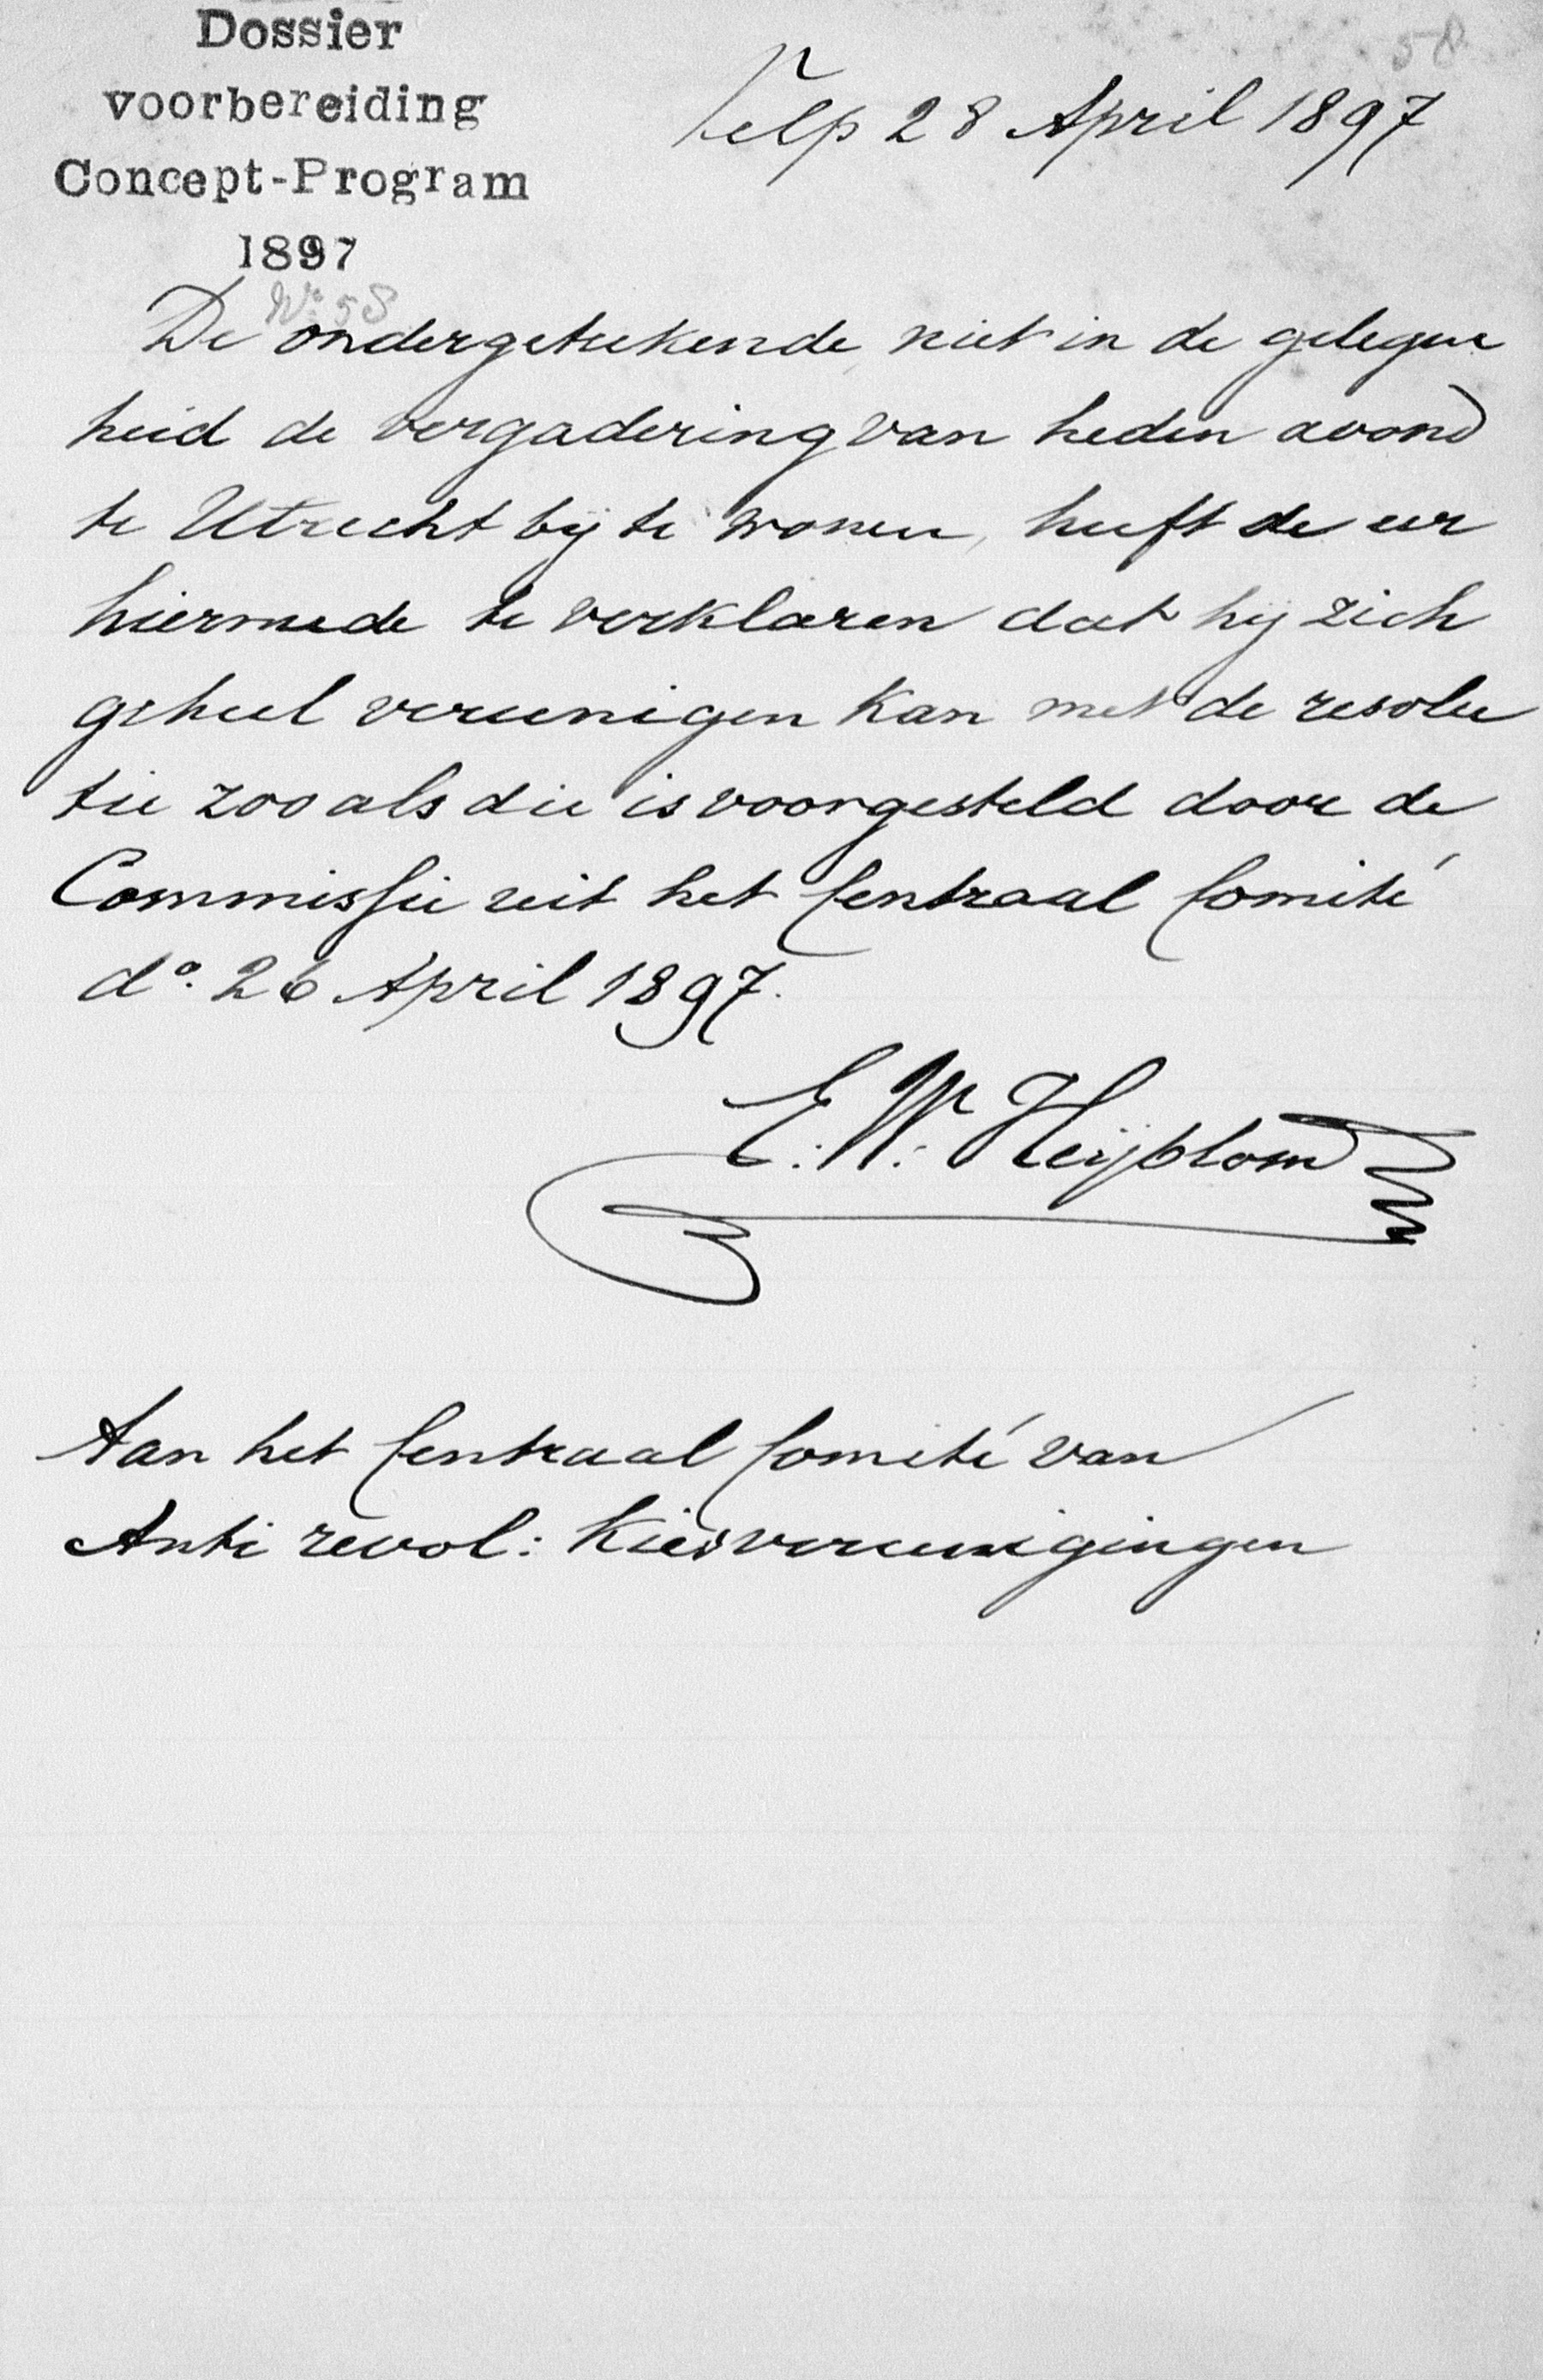 Dossier
voorbereiding
Concept-Program
1897
No. 58
58
Velp 28 April 1897
De ondergeteekende, niet in de gelegen
heid de vergadering van heden avond
te Utrecht bij te wonen, heeft de eer
hiermede te verklaren dat hij zich
geheel vereenigen kan met de resolu
tie zooals die is voorgesteld door de
Commissie uit het Centraal Comité
do. 26 April 1897.
E. W. Heijblom
Aan het Centraal Comité van
Anti revol: Kiesvereenigingen